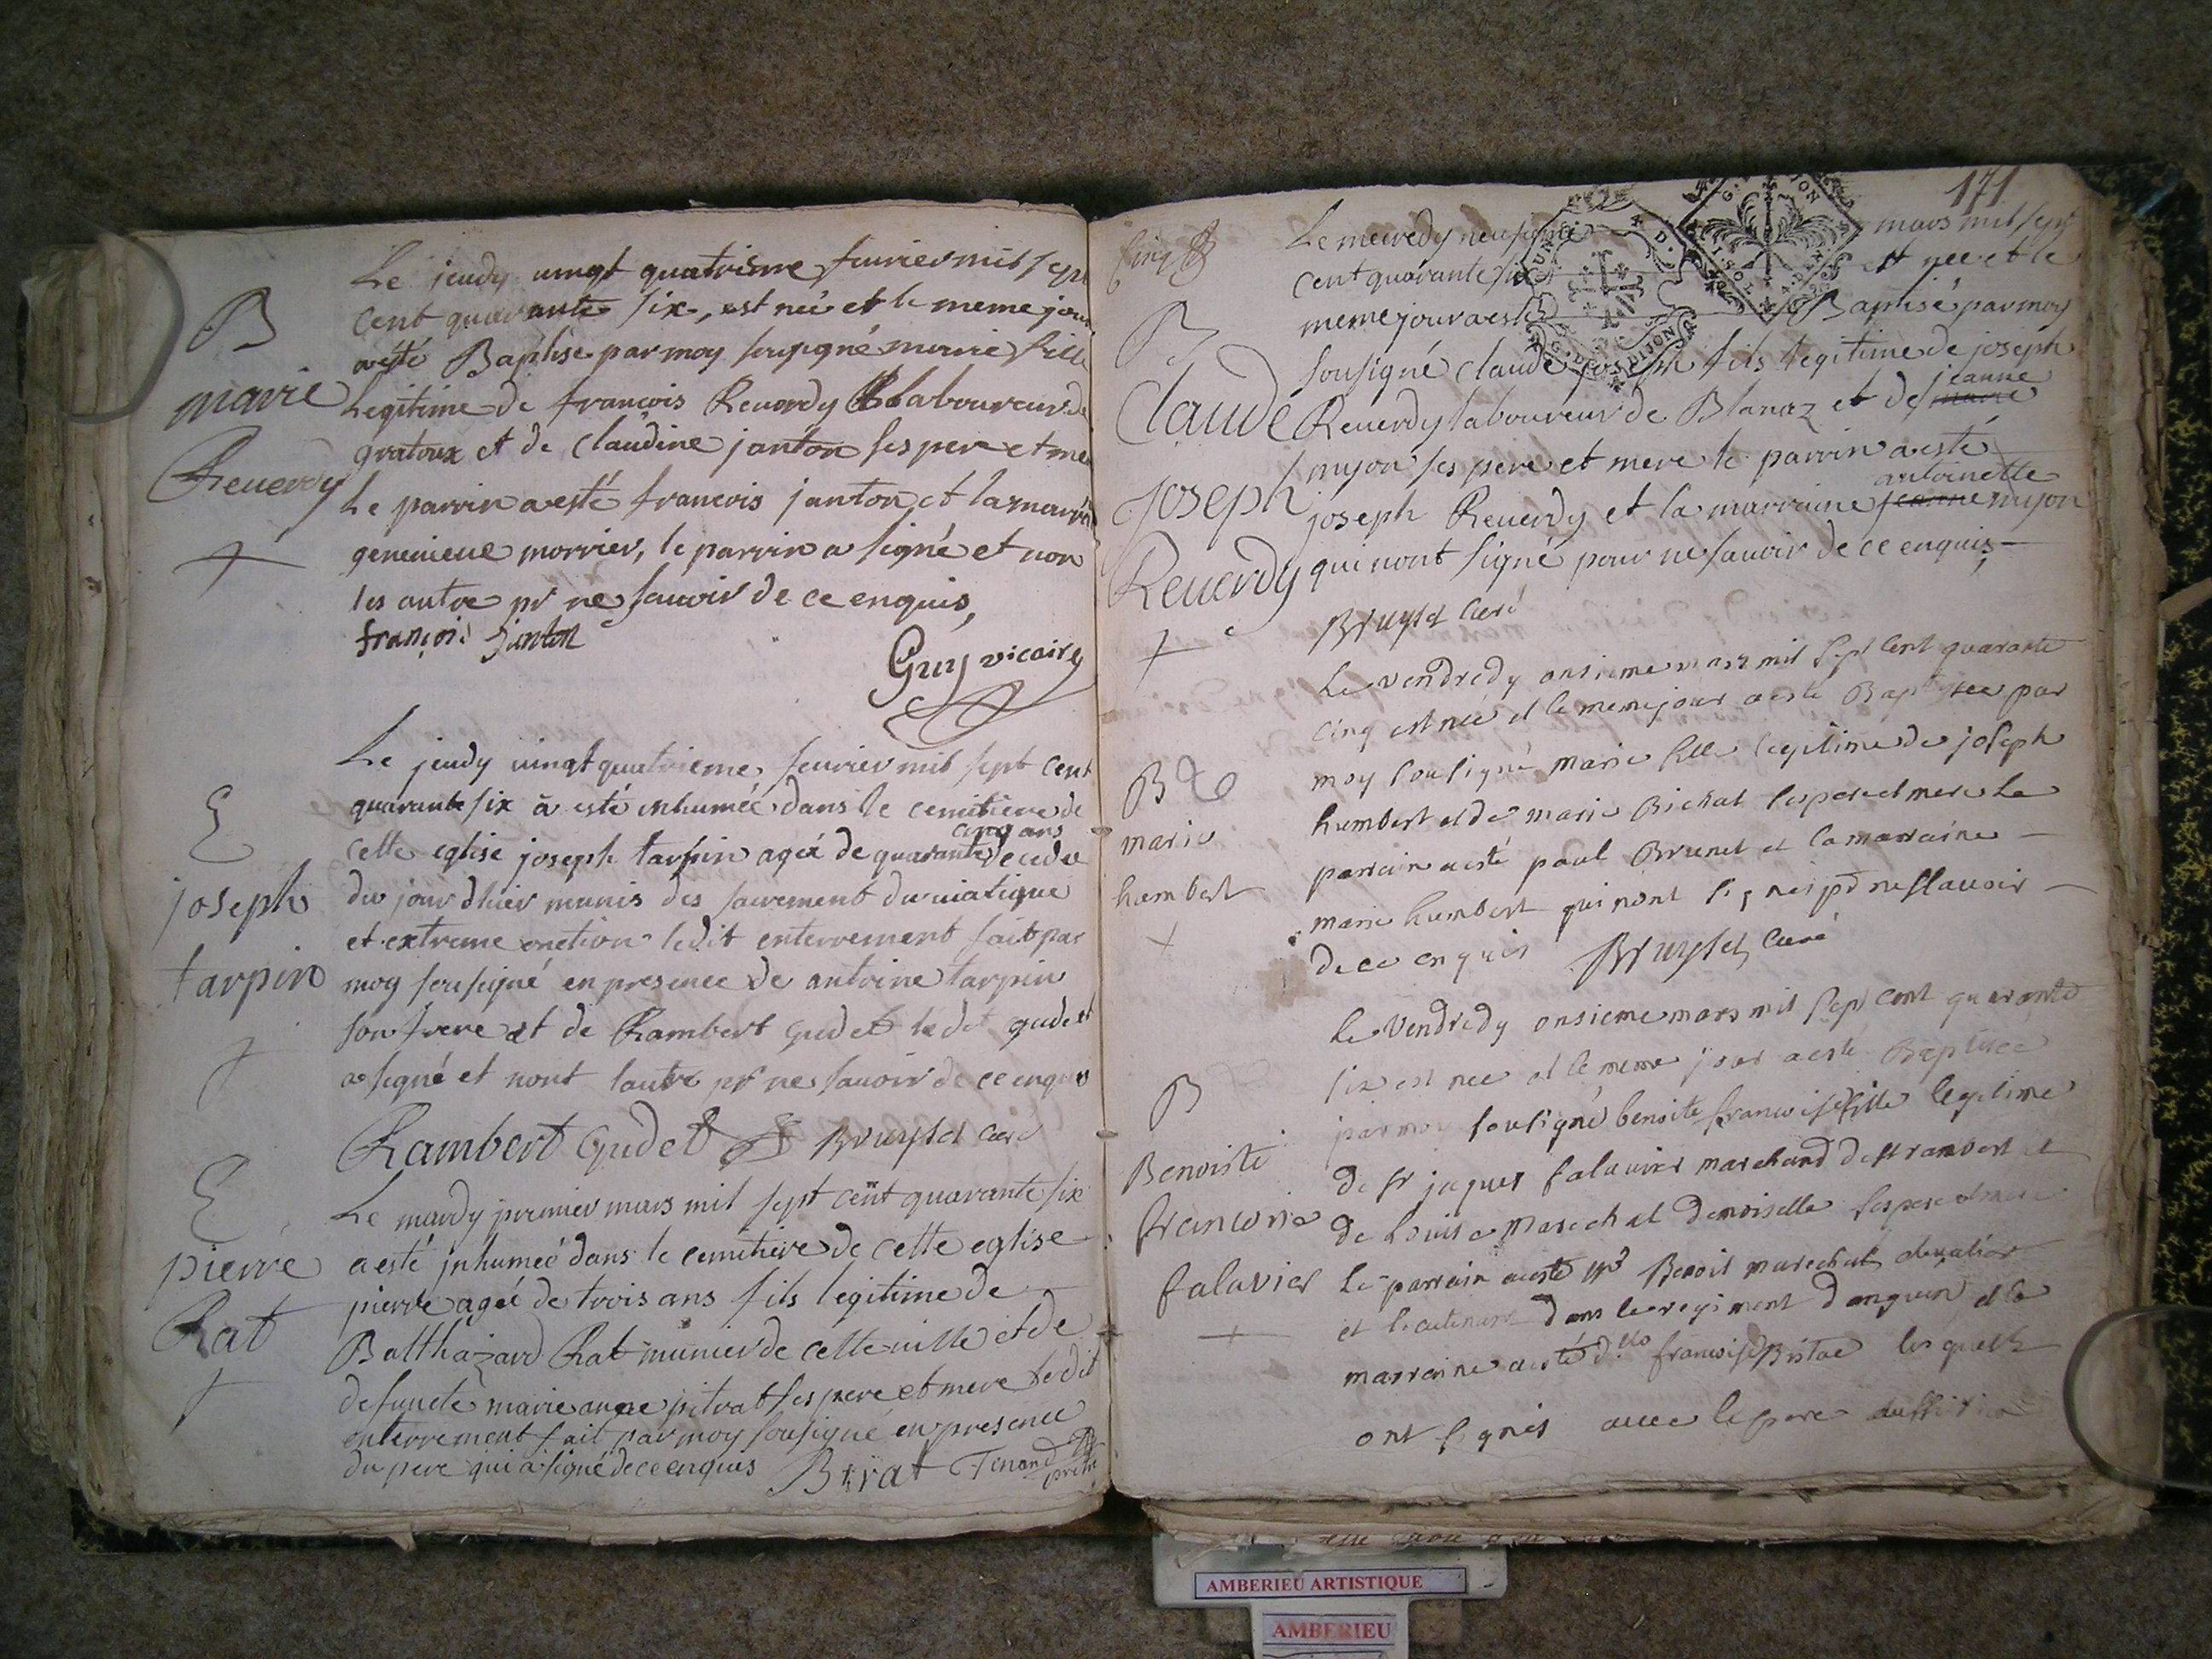 B
marie
Reuerdy
Le jeudy uingt quatrisme feurier mil sept
cent quarante six, est neé et le meme jour
aésté Baptisé par moy sousigné marie fille
Legitime de francois Reuerdy laboureur de
gratoux et de claudine janton ses pere et me
Le parrin aesté francois janton et la marr
geneuieue morrier, le parrin a signé et non
les autre pr ne sauoir de ce enquis,
françois janton
Guy vicaire
E
joseph
tarpin
Le jeudy uingt quatrieme feurier mil sept cent
quarante six à esté inhumée dans le cemitiere de
cinq ans
cette eglise joseph tarpin ageé de quarante decede
du jour dhier munis des sacrement du uiatique
et extreme onction ledit enterrement fait par
moy sousigné en presence de antoine tarpin
son frere et de Rambert gudet le dt gudet
a signé et nont lautre pr ne sauoir de ce enquis
Rambert Gudet Bruyset curé
E
pierre
Rat
Le mardy premier mars mil sept cent quarante six
aesté jnhumeé dans le cemitiere de cette eglise
pierre ageé de trois ans fils legitime de
Balthazard Rat munier de cette uille et de
defuncte marie anne pitrat ses pere et mere ledit
enterrement fait par moy sousigné en presence
du pere qui à signé de ce enquis B rat Tenand
prêtre
171
Cinq
B
Claude
joseph
Reuerdy
Le mecredy neufieme mars mil sept
cent quarante six est neé et le
meme jour aesté Baptisé par moy
sousigné claude joseph fils legitime de joseph
jeanne
Reuerdy laboureur de Blanaz et de marie
mjon ses pere et mere le parrin aesté
antoinette
joseph Reuerdy et la marraine jeanne mjon
qui nont signé pour ne sauoir de ce enquis
Bruyset Curé
B
marie
humbert
Le vendredy onsieme mars mil sept cent quarante
cinq est neé et le meme jour aesté Baptisee par
moy sousigné marie fille legitime de joseph
humbert et de marie Bichat ses pere et mere Le
parrain aesté paul Brunet et la marraine
marie humbert qui nont signé pr ne sçauoir
de ce enquis Bruyset Curé
B
Benoiste
francoise
falavier
Le Vendredy onsieme mars mil sept cent quarante
six est neé et le meme jour aesté Baptisée
par moy sousigné benoite francoise fille legitime
de sr jaques falauier marchand de st rambert et
de Louise marechal demoiselle ses pere et mere
Le parrain aesté mr Benoit marechal cheualier
et lieutenant dans le regiment danguin et la
marraine aesté dlle francoise Bistac lesquels
ont signés auec le pere
AMBERIEU ARTISTIQUE
AMBERIEU